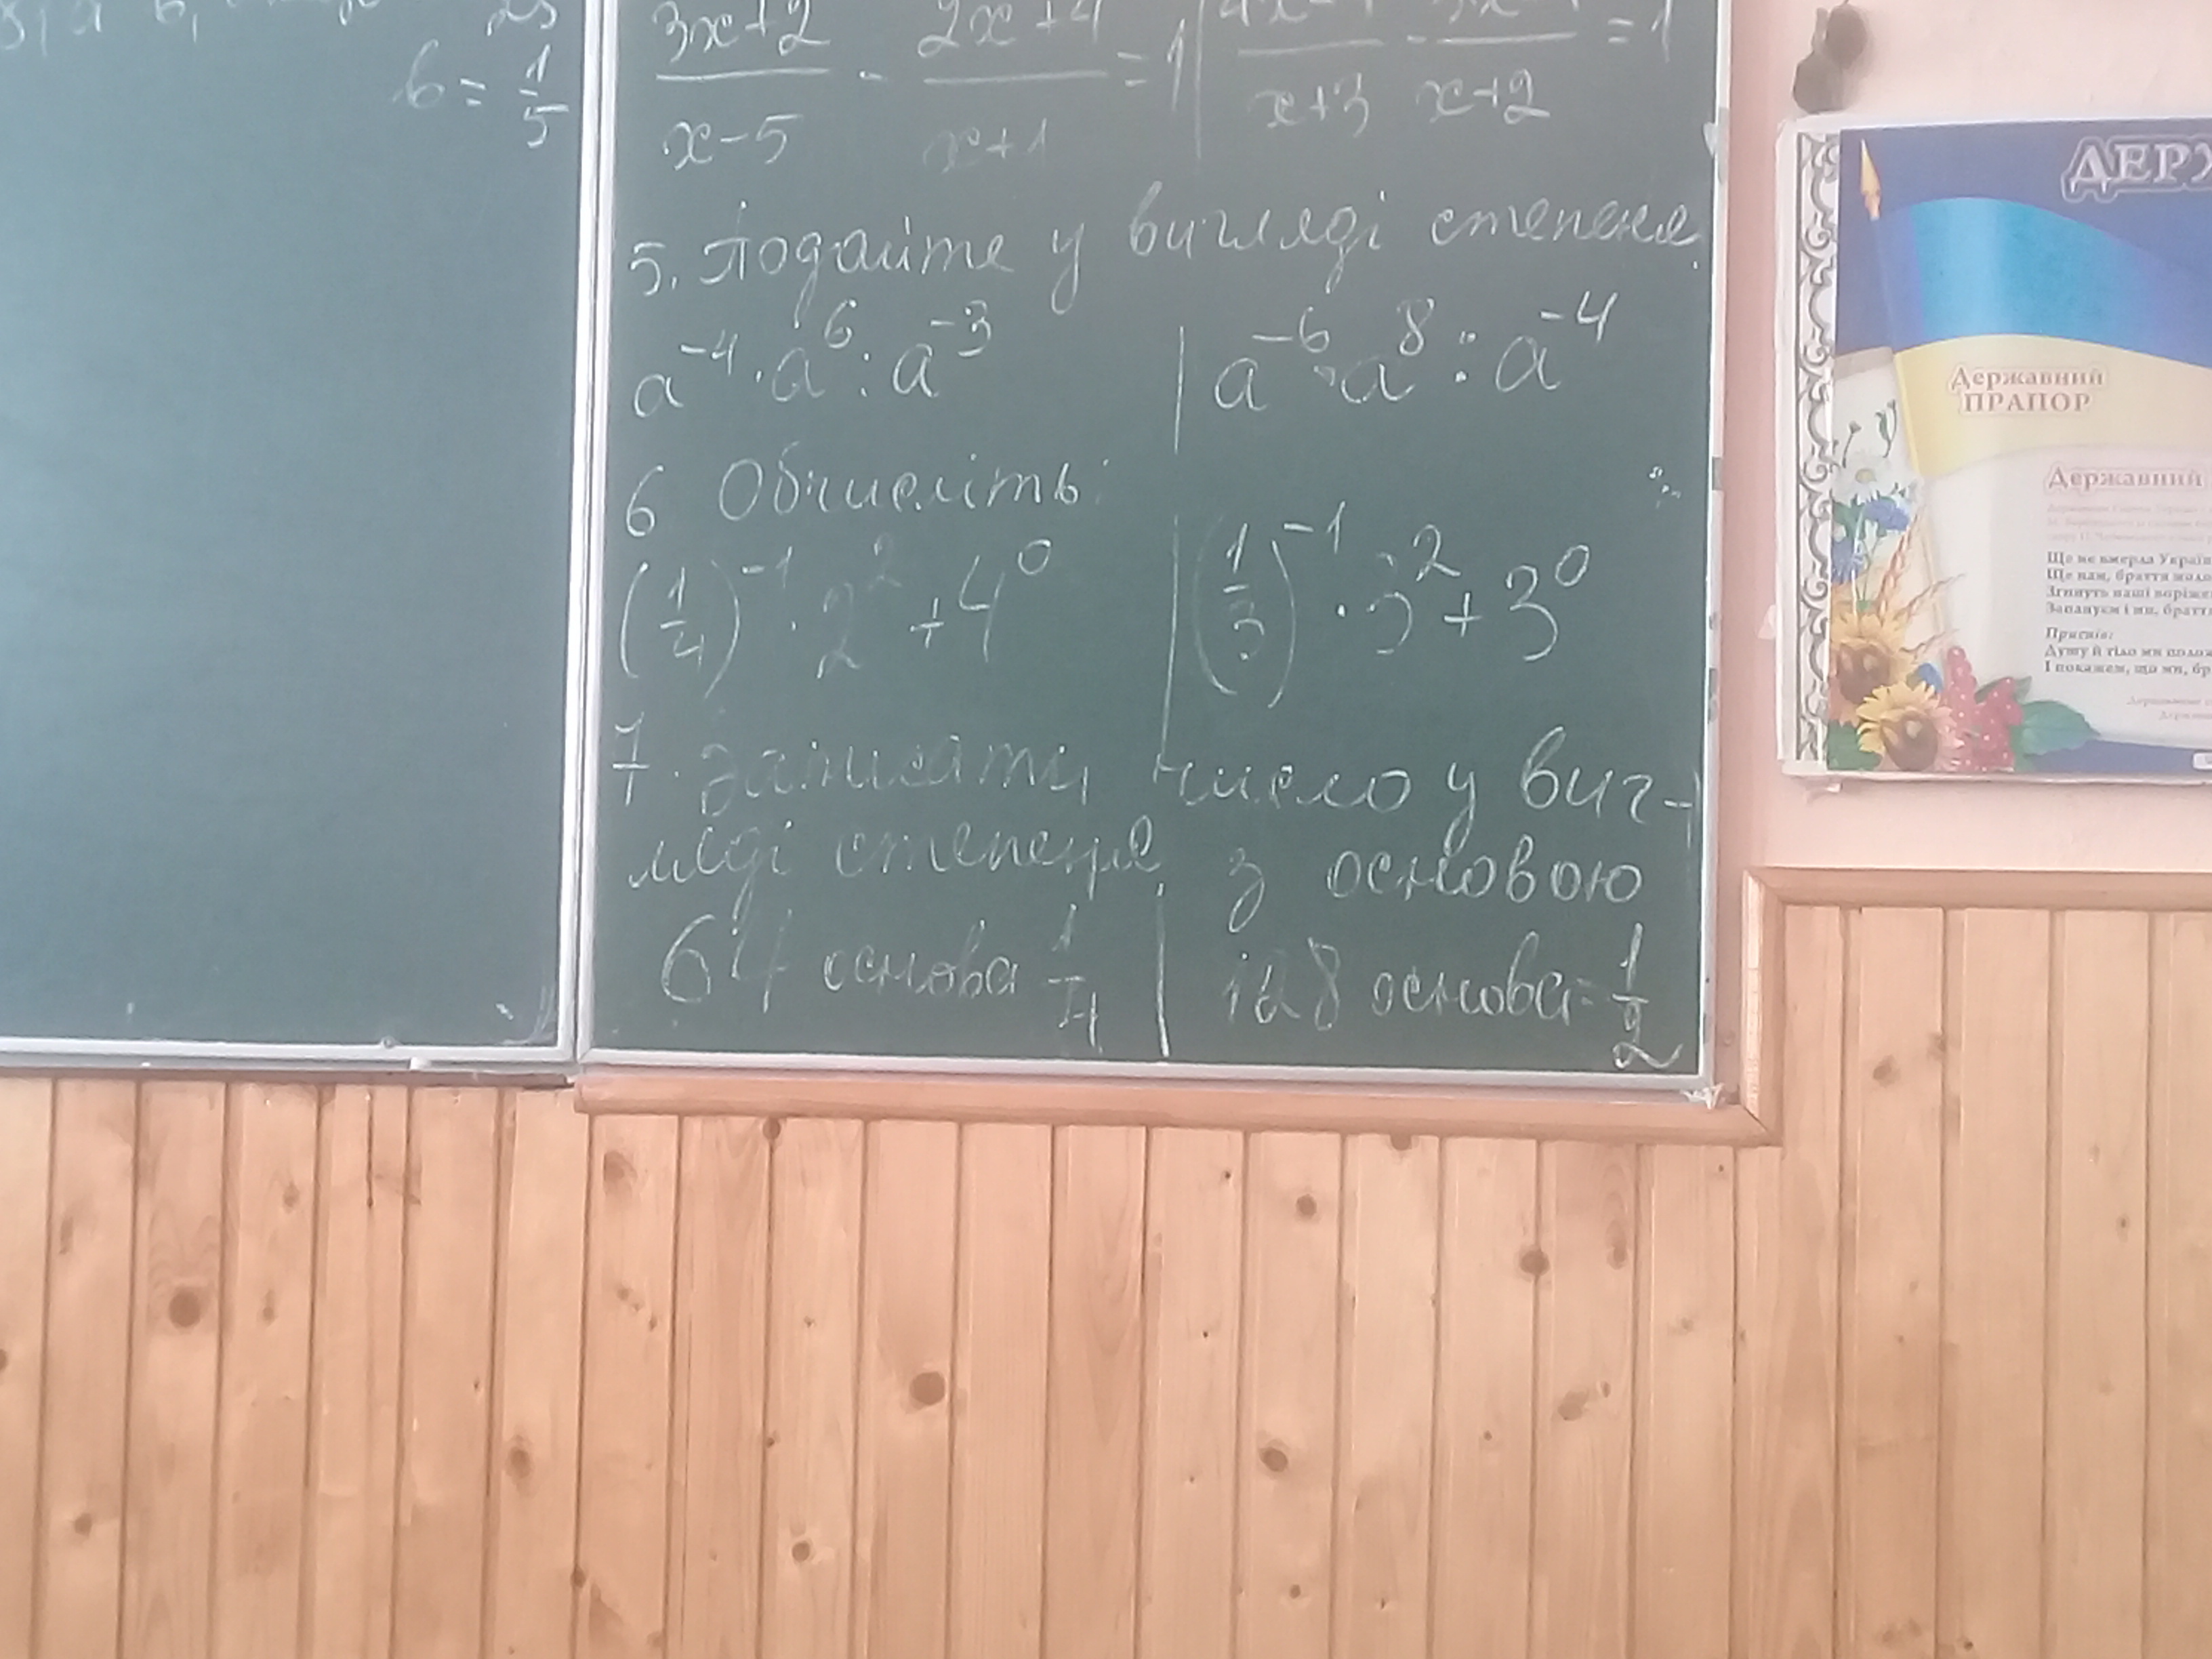 b = 1/5
(3x+2)/(x-5) - (2x+4)/(x+1) = 1
x+3 x+2 = 1
5. Подайте у вигляді степеня
a⁻⁴ · a⁶ : a⁻³ | a⁻⁶ · a⁸ : a⁻⁴
6 Обчисліть:
(1/4)⁻¹ · 2² + 4⁰ | (1/3)⁻¹ · 3² + 3⁰
7. Записати число у виг-
ляді степеня з основою
64 основа 1/4 | 128 основа = 1/2
ДЕРЖ
Державний
ПРАПОР
Державний
Ще не вмерла Украї
Ще нам, браття моло
Згинуть наші воріже
Запануєм і ми, братт
Приспів:
Душу й тіло ми поло
І покажем, що ми, бр